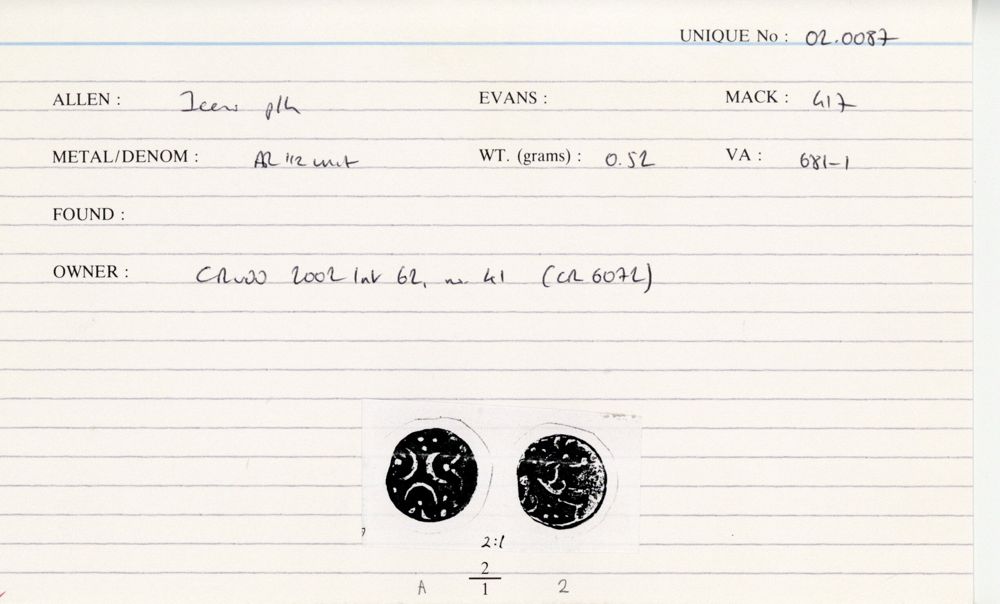 UNIQUE No : 02.0087
ALLEN : Iceni EVANS : MACK : 417
METAL/DENOM : AR 1/2 unit WT. (grams) : 0.52 VA : 681-1
FOUND :
OWNER : 2002 62, no. 41 (CR 6072)
2:1
2
A 1 2